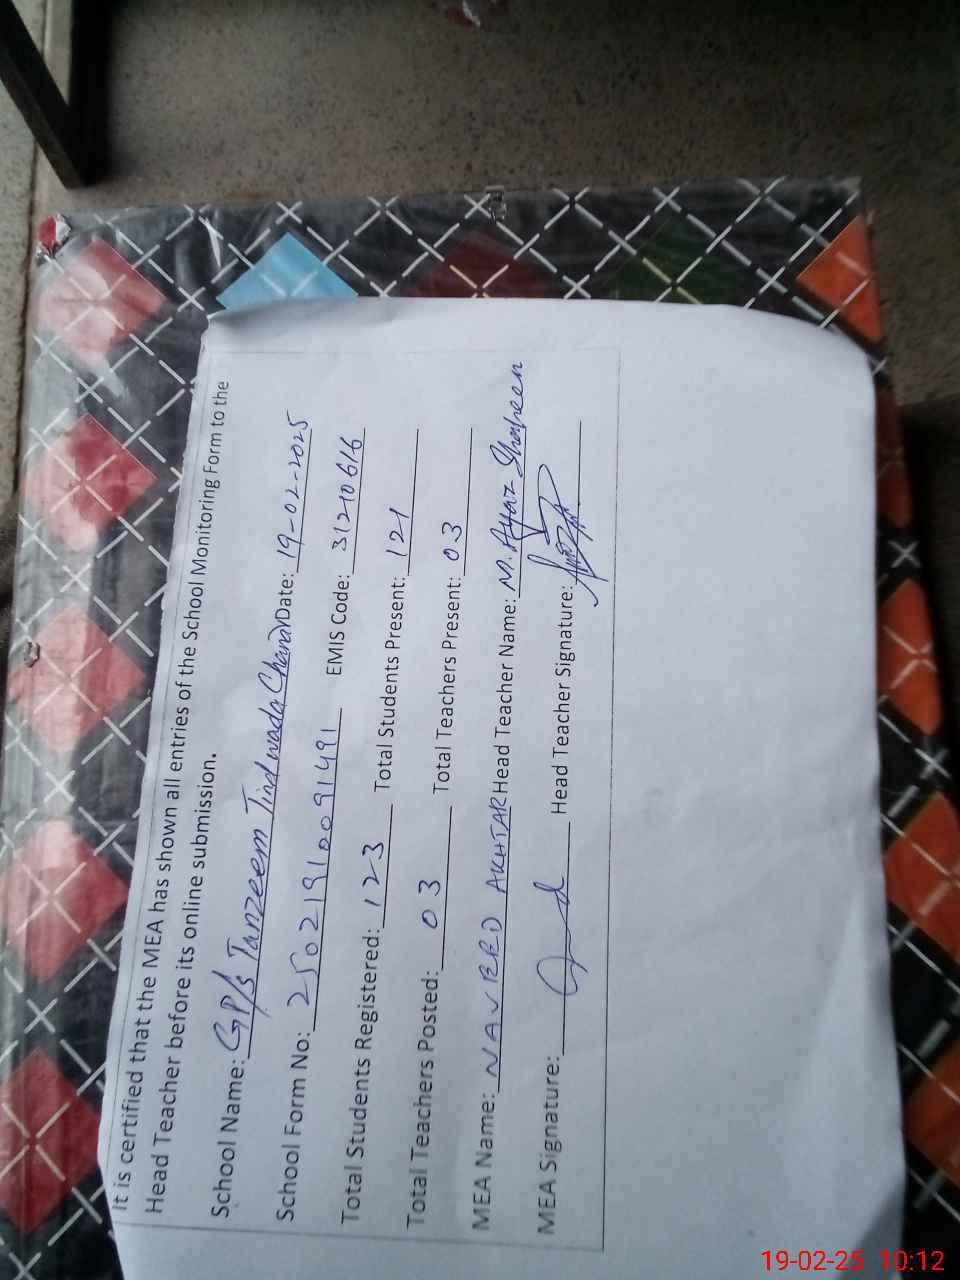 It is certified that the MEA has shown all entries of the School Monitoring Form to the
Head Teacher before its online submission.
School Name: GP/s Tanzeem Tindwada Chanar Date: 19-02-2025
School Form No: 25021910091491 EMIS Code: 31210616
Total Students Registered: 123 Total Students Present: 121
Total Teachers Posted: 03 Total Teachers Present: 03
MEA Name: NAVEED AKHTAR Head Teacher Name: M. Ayaz Shaheen
MEA Signature: Head Teacher Signature:
19-02-25 10:12